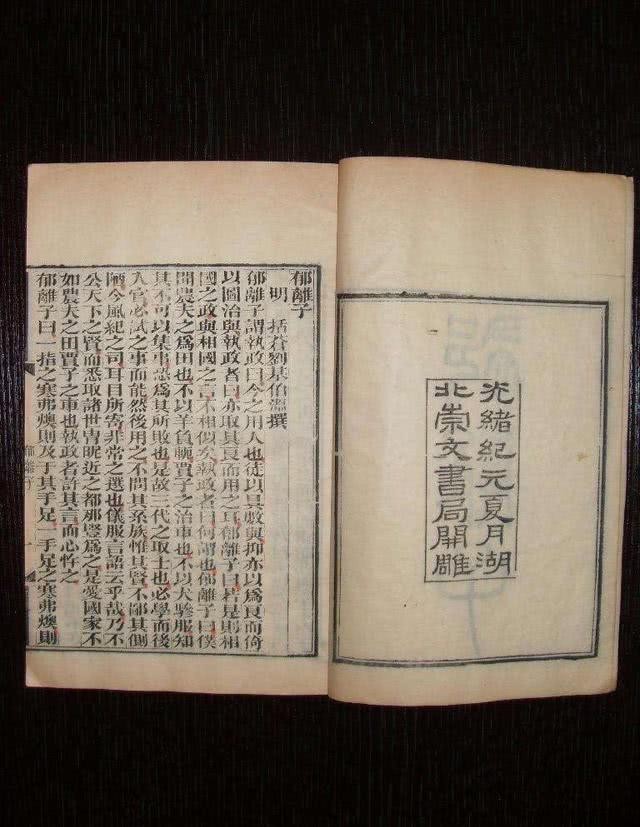 光緒紀元夏月湖
北崇文書局開雕
郁離子
明 括蒼劉基伯溫撰
郁離子謂執政曰今之用人也徒以具數與抑亦以爲良而倚
以圖治與執政者曰亦取其良而用之耳郁離子曰若是則相
國之政與相國之言不相似矣執政者曰何謂也郁離子曰僕
聞農夫之爲田也不以羊負軛賈子之治車也不以豕驂服知
其不可以集事恐爲其所敗也是故三代之取士也必學而後
入官必試之事而能然後用之不問其系族惟其賢不鄙其側
陋今風紀之司耳目所寄非常之選也儀服言語云乎哉乃不
公天下之賢而悉取諸世冑昵近之都那豎爲之是愛國家不
如農夫之田賈子之車也執政者許其言而心忤之
郁離子曰一指之寒弗燠則及于其手足一手足之寒弗燠則
郁離子